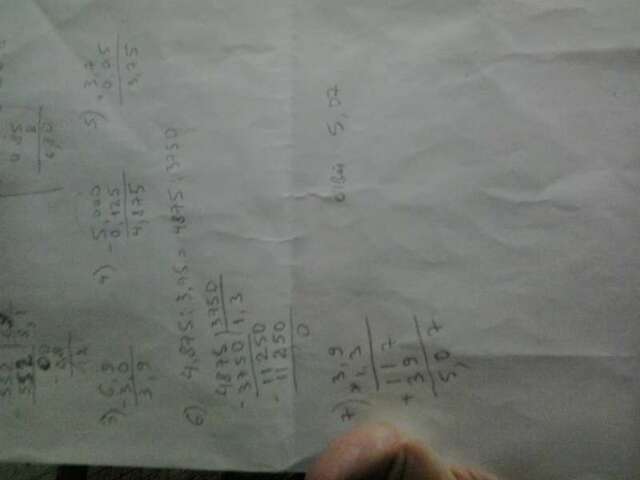 552
552
3) 6,9
- 3,0
3,9
4) 5,000
- 0,125
4,875
5) 3,7
+ 0,05
3,75
6) 4,875 : 3,75 = 4875 : 3750
4875 | 3750
- 3750 | 1,3
11250
- 11250
0
7) 3,9
× 1,3
117
+ 39
5,07
5,07